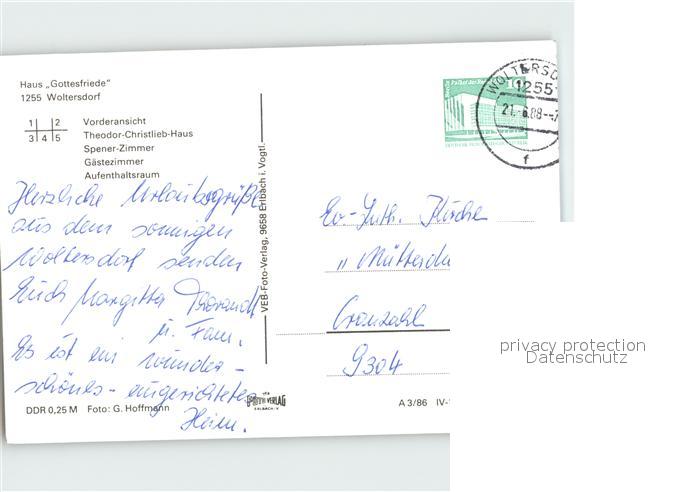 Haus „Gottesfriede"
1255 Woltersdorf
1 2
3 4 5
Vorderansicht
Theodor-Christlieb-Haus
Spener-Zimmer
Gästezimmer
Aufenthaltsraum
Herzliche Urlaubsgrüße
aus dem sonnigen
Woltersdorf senden
Euch Margitta
u. Fam.
Es ist ein wunder-
schönes - eingerichtetes
Heim.
DDR 0,25 M Foto: G. Hoffmann
VEB-Foto-Verlag, 9658 Erlbach i. Vogtl.
VEB
FOTO VERLAG
ERLBACH-V.
WOLTERSDO
1255
21.-6.88--7
f
10
Ev.-Luth. Kirchen
„ Mütterdie
Cranzahl
9304
A 3/86 IV-
privacy protection
Datenschutz